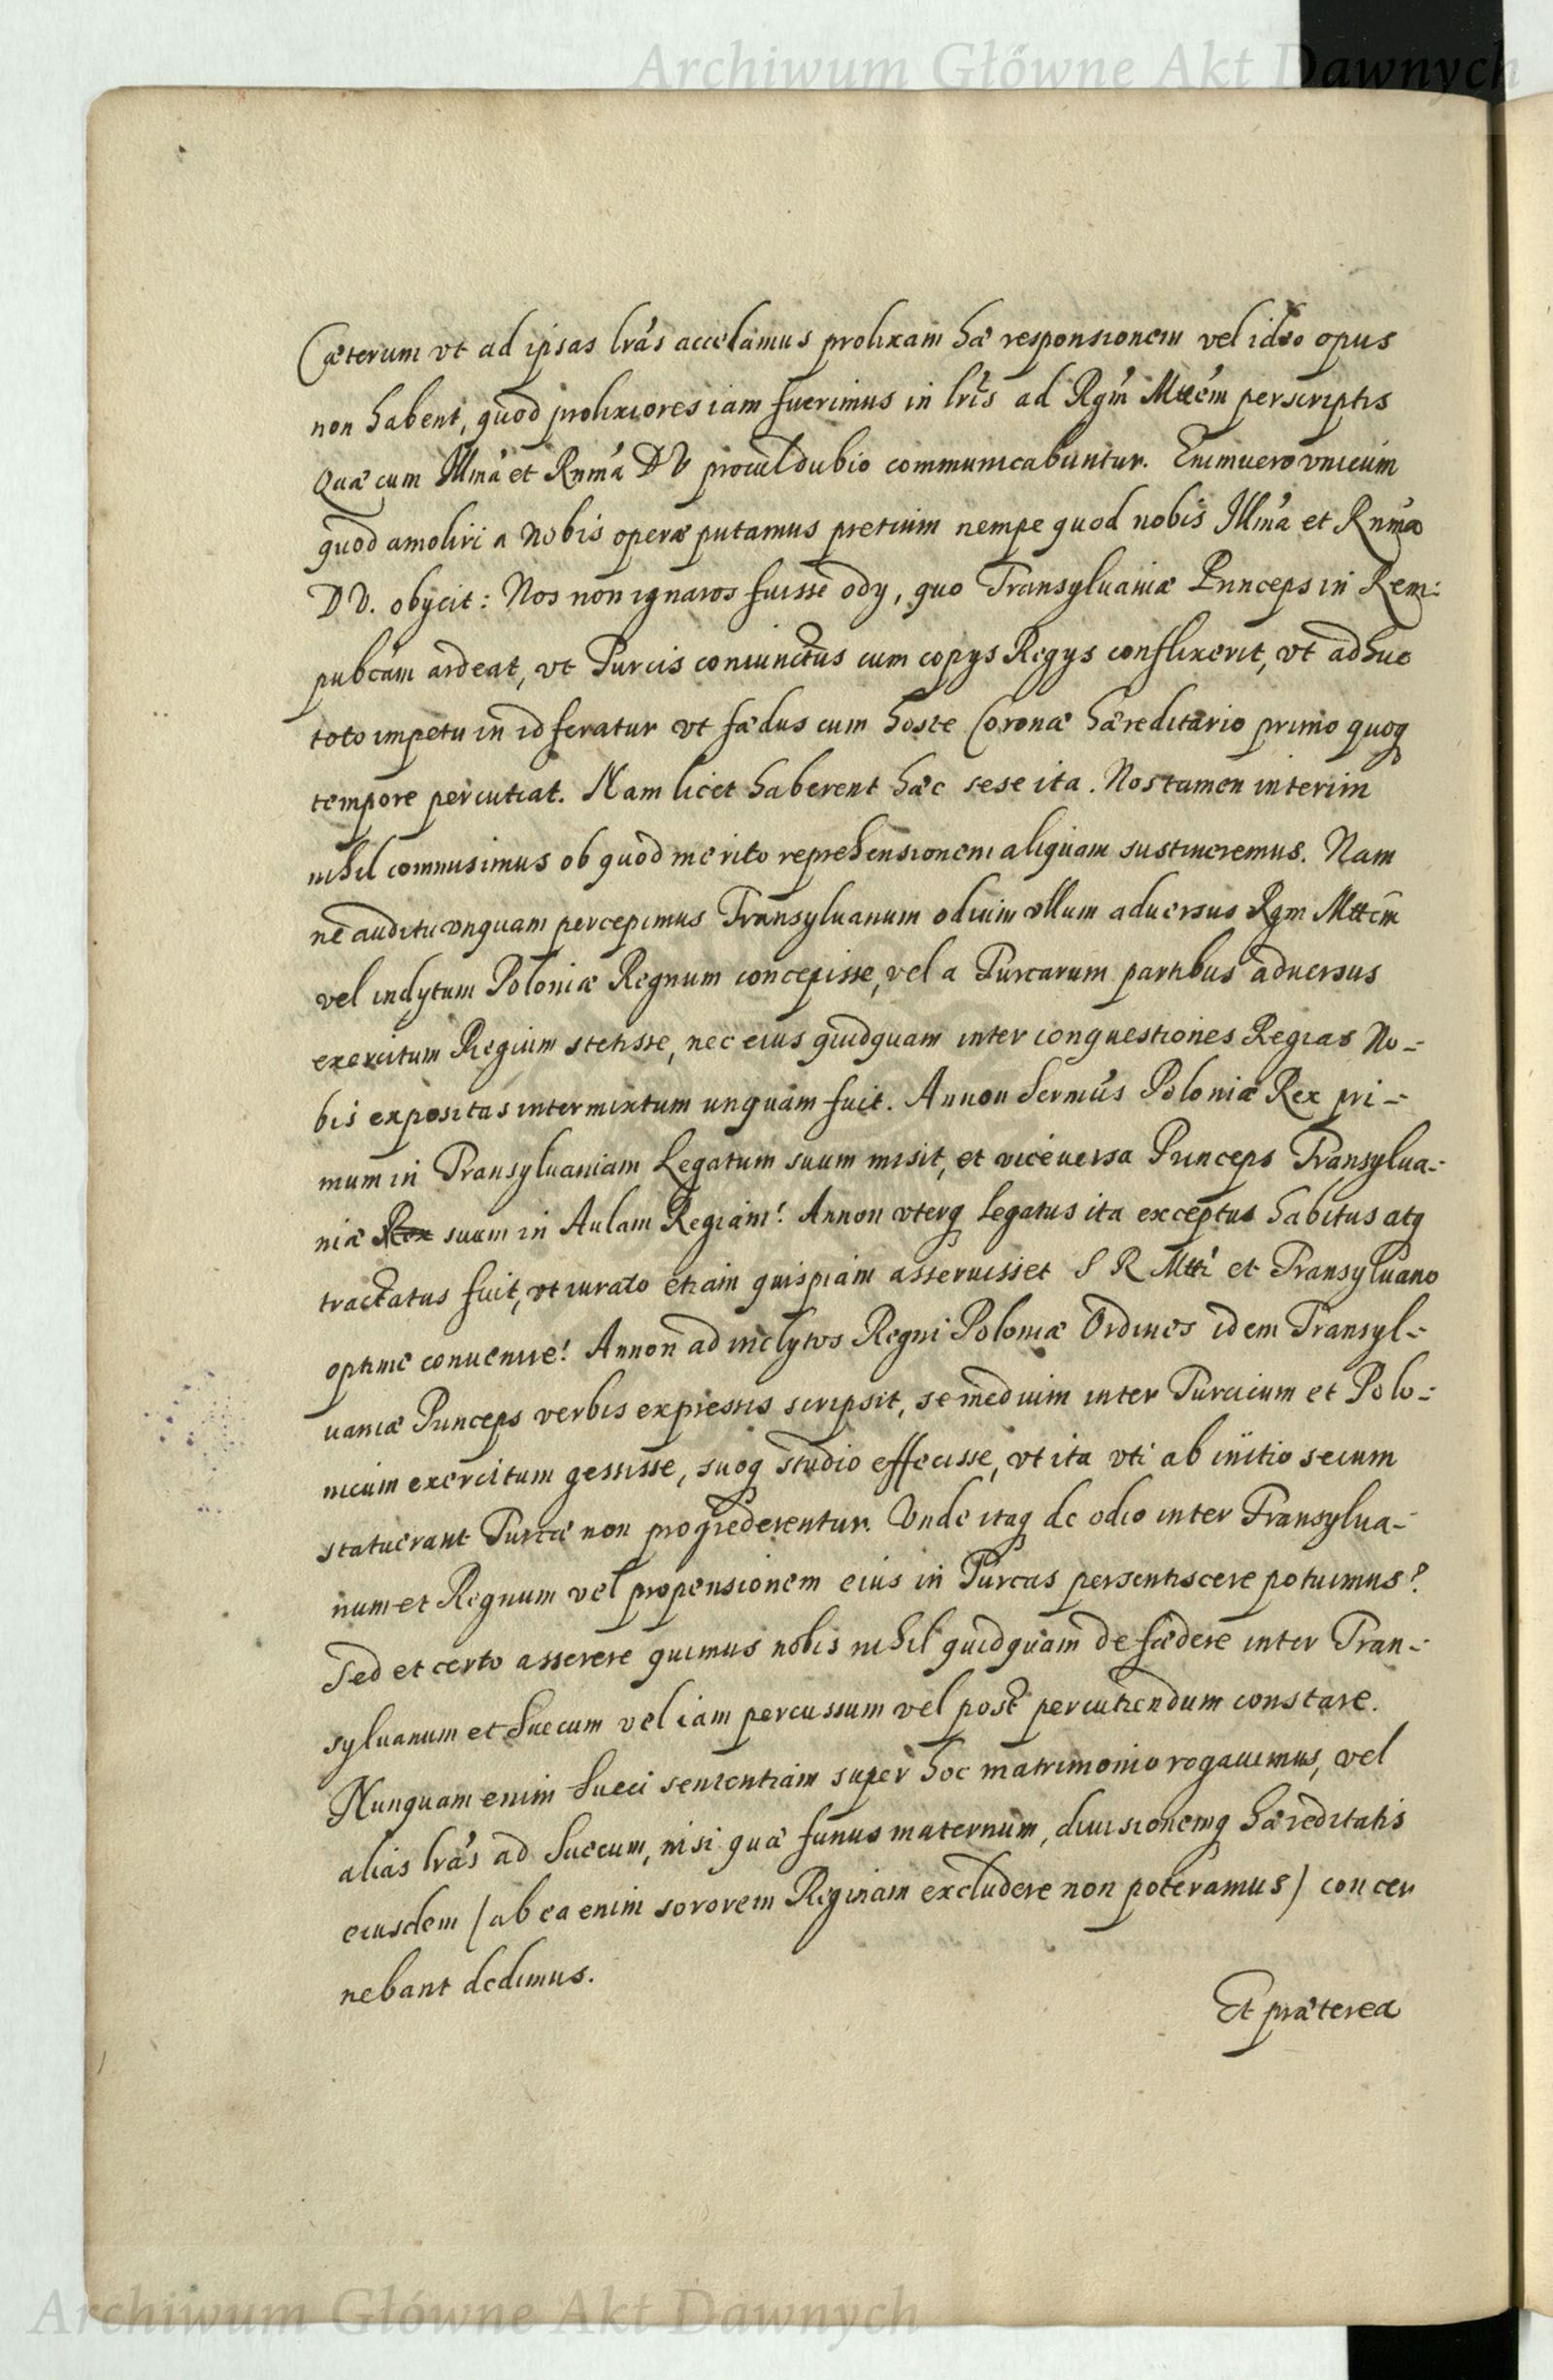 Archiwum Główne Akt Dawnych
Cæterum vt ad ipsas lrãs accedamus prolixam hæ responsionem vel ideo opus
non habent, quod prolixiores iam fuerimus in lris ad Rgm̃ Mttem̃ perscriptis
Quæ cum Illmã et Rnmã D V proculdubio communicabuntur. Enimuero vnicum
quod amoliri a nobis operæ putamus pretium nempe quod nobis Illmã et Rnmã
D V. obycit: Nos non ignaros fuisse ody, quo Transyluaniæ Princeps in Rem:
pubcam ardeat, vt Turcis coniunctus cum copys Regys conflixerit, vt adhuc
toto impetu in id feratur vt fædus cum hoste Coronæ hæreditario primo quoq
tempore percutiat. Nam licet haberent hæc sese ita. Nos tamen interim
nihil commisimus ob quod merito reprehensionem aliquam sustineremus. Nam
ne auditu vnquam percepimus Transyluanum odium vllum aduersus Rgm Mttem̃
vel inclytum Poloniæ Regnum concepisse, vel a Turcarum partibus aduersus
exercitum Regium stetisse, nec eius quidquam inter conquestiones Regias No-
bis expositas intermixtum unquam fuit. Annon Sermũs Poloniæ Rex pri-
mum in Transyluaniam Legatum suum misit, et viceuersa Princeps Transylua-
niæ Rex suum in Aulam Regiam! Annon vterq Legatus ita exceptus habitus atq
tractatus fuit, vt iurato etiam quispiam asseruisset S R Mtti et Transyluano
optime conuenire! Annon ad inclytos Regni Poloniæ Ordines idem Transyl-
uaniæ Princeps verbis expressis scripsit, se medium inter Turcicum et Polo-
nicum exercitum gessisse, suoq studio effecisse, vt ita vti ab initio secum
statuerant Turcæ non progrederentur. Vnde itaq de odio inter Transylua-
num et Regnum vel propensionem eius in Turcas persentiscere potuimus?
Sed et certo asserere quimus nobis nihil quidquam de fædere inter Tran-
syluanum et Suecum vel iam percussum vel post percutiendum constare.
Nunquam enim Sueci sententiam super hoc matrimonio rogauimus, vel
alias lrãs ad Suecum, nisi quæ funus maternum, diuisionemq hæreditatis
eiusdem / ab ea enim sororem Reginam excludere non poteramus / concer
nebant dedimus.
Et præterea
Archiwum Główne Akt Dawnych